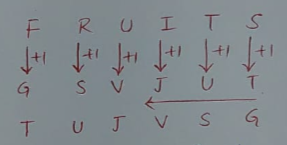 F R U I T S
+1 +1 +1 +1 +1 +1
G S V J U T
T U J V S G